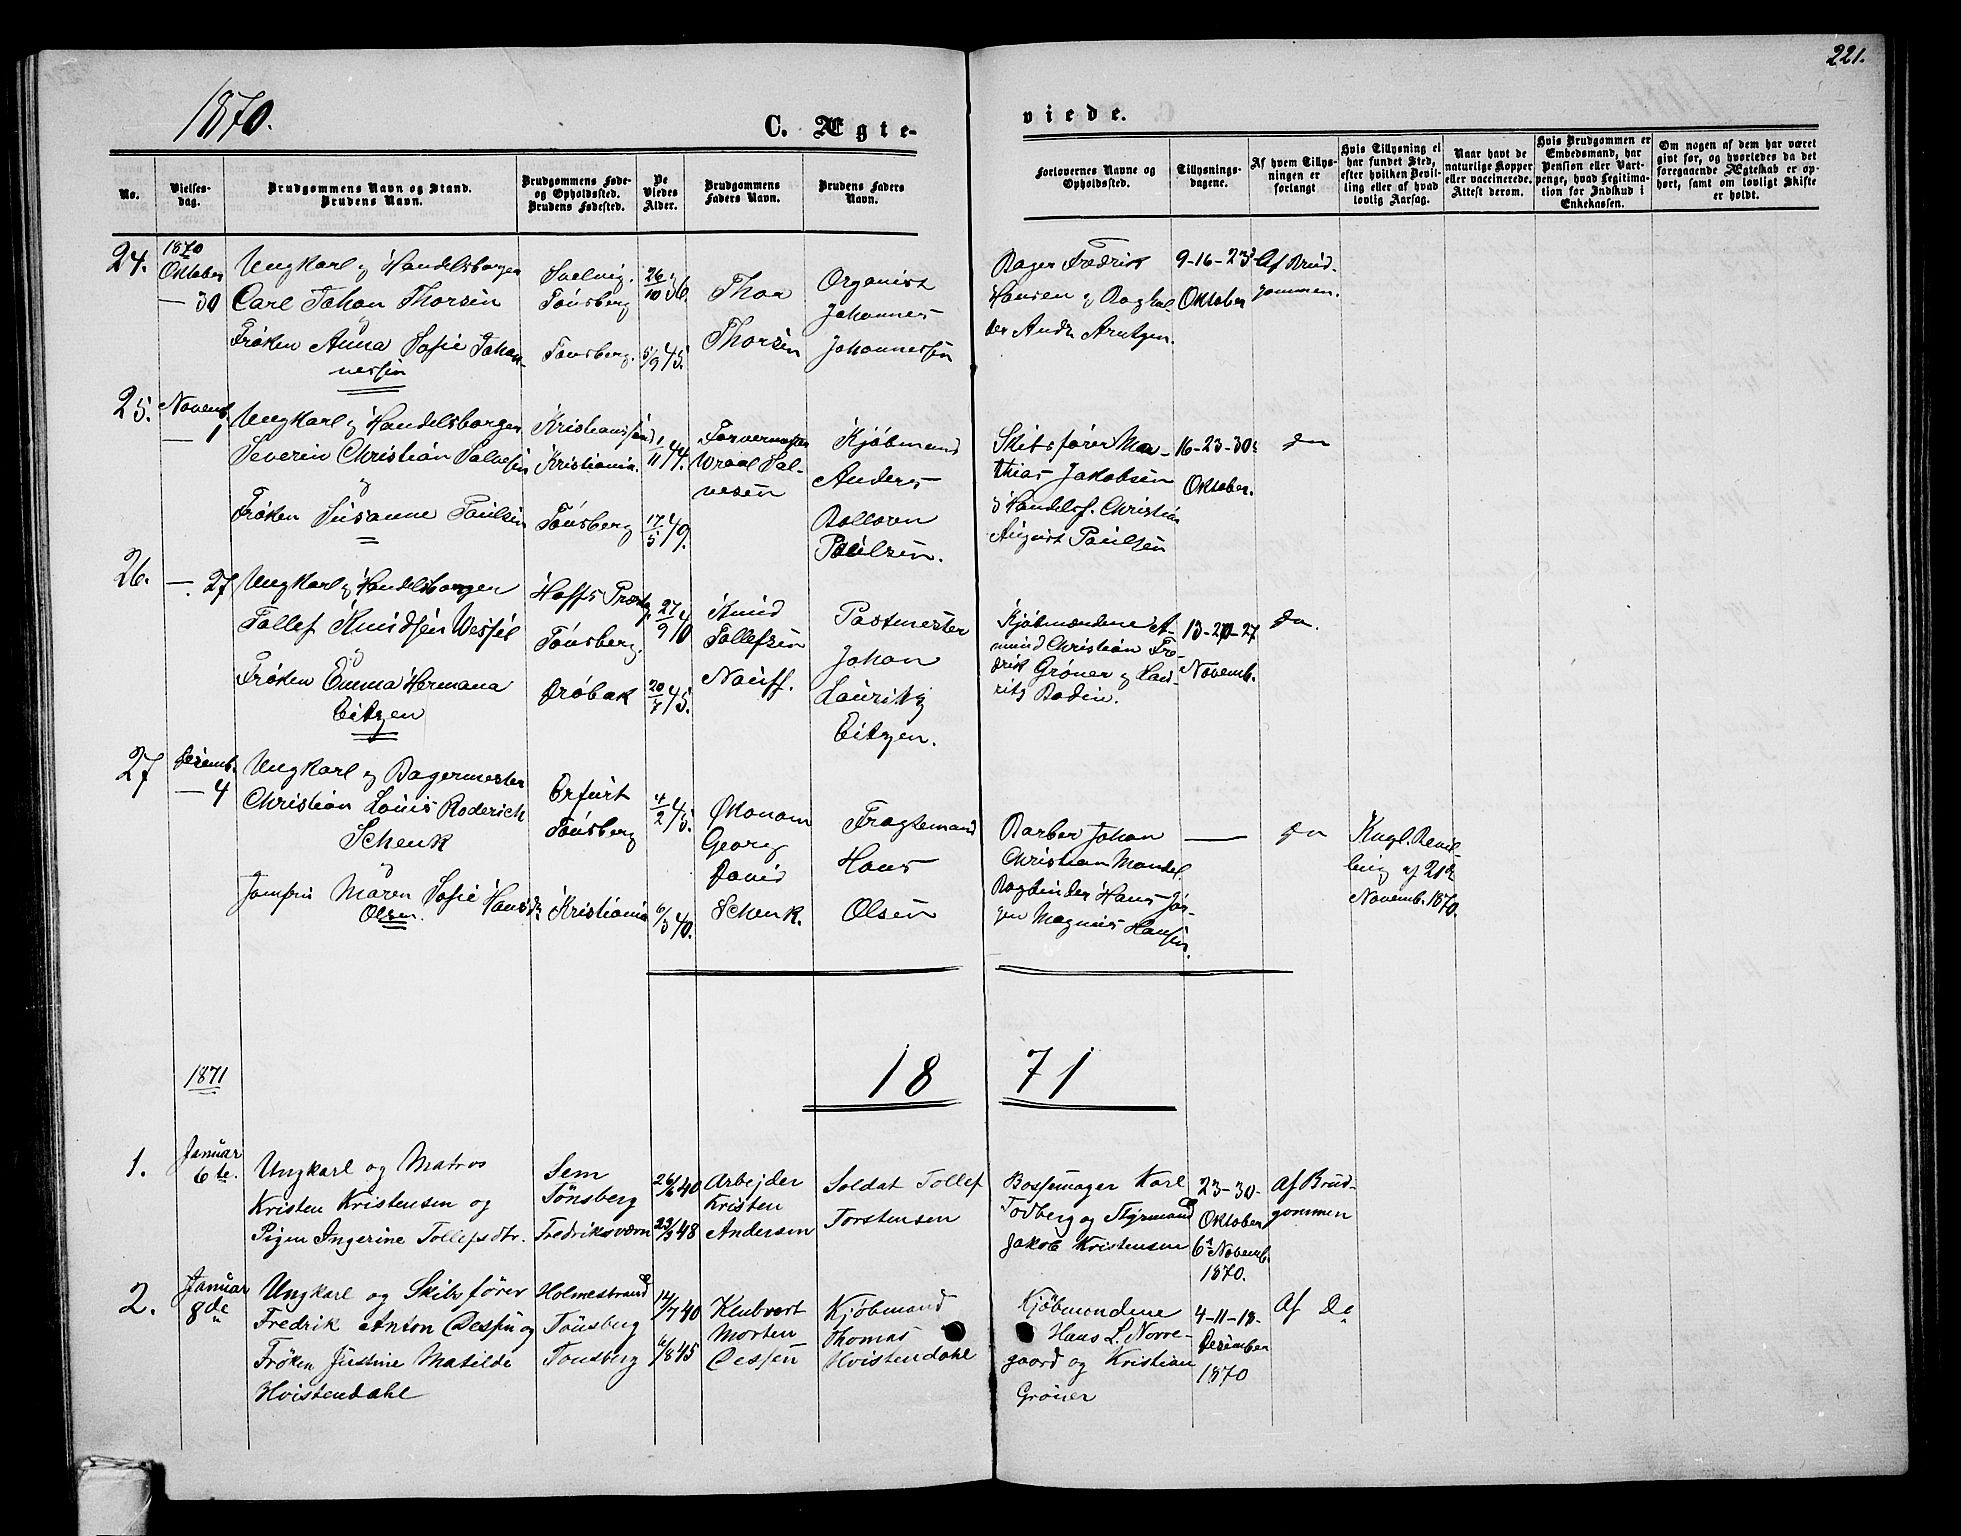 221.
1870.
C. Ægte-
viede.
No.
Vielses-
dag.
Brudgommens Navn og Stand.
Brudens Navn.
Brudgommens Føde-
og Opholdssted.
Brudens Fødested.
De
Viedes
Alder.
Brudgommens
Faders Navn.
Brudens Faders
Navn.
Forlovernes Navne og
Opholdssted.
Tillysnings-
dagene.
Af hvem Tillys-
ningen er
forlangt.
Hvis Tillysning ei
har fundet Sted,
efter hvilken Bevil-
ling eller af hvad
lovlig Aarsag.
Naar havt de
naturlige Kopper
eller vaccinerede.
Attest derom.
Hvis Brudgommen er
Embedsmand, har
Pension eller Vart-
penge, hvad Legitima-
tion for Indskud i
Enkekassen.
Om nogen af dem har været
gift før, og hvorledes da det
foregaaende Ægteskab er op-
hørt, samt om lovligt Skifte
er holdt.
24.
1870
Oktober
— 30
Ungkarl og Handelsborger
Carl Johan Thorsen
og
Frøken Anna Sofie Johan-
nessen
Svelvig.
Tønsberg
Tønsberg.
26/10 36.
5/9 45.
Thor
Thorsen
Organist
Johannes
Johannessen
Bager Fredrik
Hansen og Boghol-
der Andr. Arntzen.
9-16-23
Oktober
Af Brud-
gommen.
25.
Novemb.
— 1
Ungkarl og Handelsborger
Severin Christian Salvesen
og
Frøken Susanne Paulsen
Kristianssand
Kristiania.
Tønsberg
1/11 44.
17/5 49.
Farvermester
Wraal Sal-
vesen
Kjøbmand
Anders
Bolloren
Paulsen.
Skibsfører Ma-
thias Jakobsen
og Handelsf. Christian
August Paulsen
16-23-30
Oktober.
do
26.
—. 27
Ungkarl og Handelsborger
Tollef Knudsen Wessel
og
Frøken Emma Hermana
Eitzen
Hoffs Præstg.
Tønsberg.
Drøbak
27/9 40
20/7 45.
Knud
Tollefsen
Nauff.
Postmester
Johan
Lauritz
Eitzen.
Kjøbmændene A-
mund Christian Fre-
drik Grøner og Lau-
rits Bodin.
13-20-27
Novemb.
do.
27
Desemb.
— 4
Ungkarl og Bagermester
Christian Louis Roderich
Schenk
og
Jomfru Maren Sofie Hansdr
Olsen.
Erfurt
Tønsberg
Kristiania
4/2 45.
6/3 40.
Økonom
Georg
David
Schenk.
Fragtemand
Hans
Olsen
Barber Johan
Christian Mandel.
Bogbinder Hans Jør-
gen Magnus Hansen.
—
do
Kngl. Bevil-
ling af 21de
Novemb. 1870.
1871
18 71
1.
Januar
6te.
Ungkarl og Matros
Kristen Kristensen og
Pigen Ingerine Tollefsdtr.
Sem
Tönsberg
Fredriksværn
26/6 40
23/3 48
Arbejder
Kristen
Andersen
Soldat Tollef
Torstensen
Bossemager Karl
Todberg og Styrmand
Jakob Kristensen
23-30-
Oktober
6 Novemb.
1870.
Af Brud-
gommen
2.
Januar
8de
Ungkarl og Skibsfører
Fredrik Anton Dessen og
Frøken Justine Matilde
Hvistendahl
Holmestrand
Tönsberg
Tonsberg
14/7 40
6/8 45
Klubvert
Morten
Dessen
Kjöbmand
Thomas
Hvistendahl
Kjöbmondene
Hans L. Norre-
gaard og Kristian
Gröner
4-11-18-
Desember
1870
Af Do